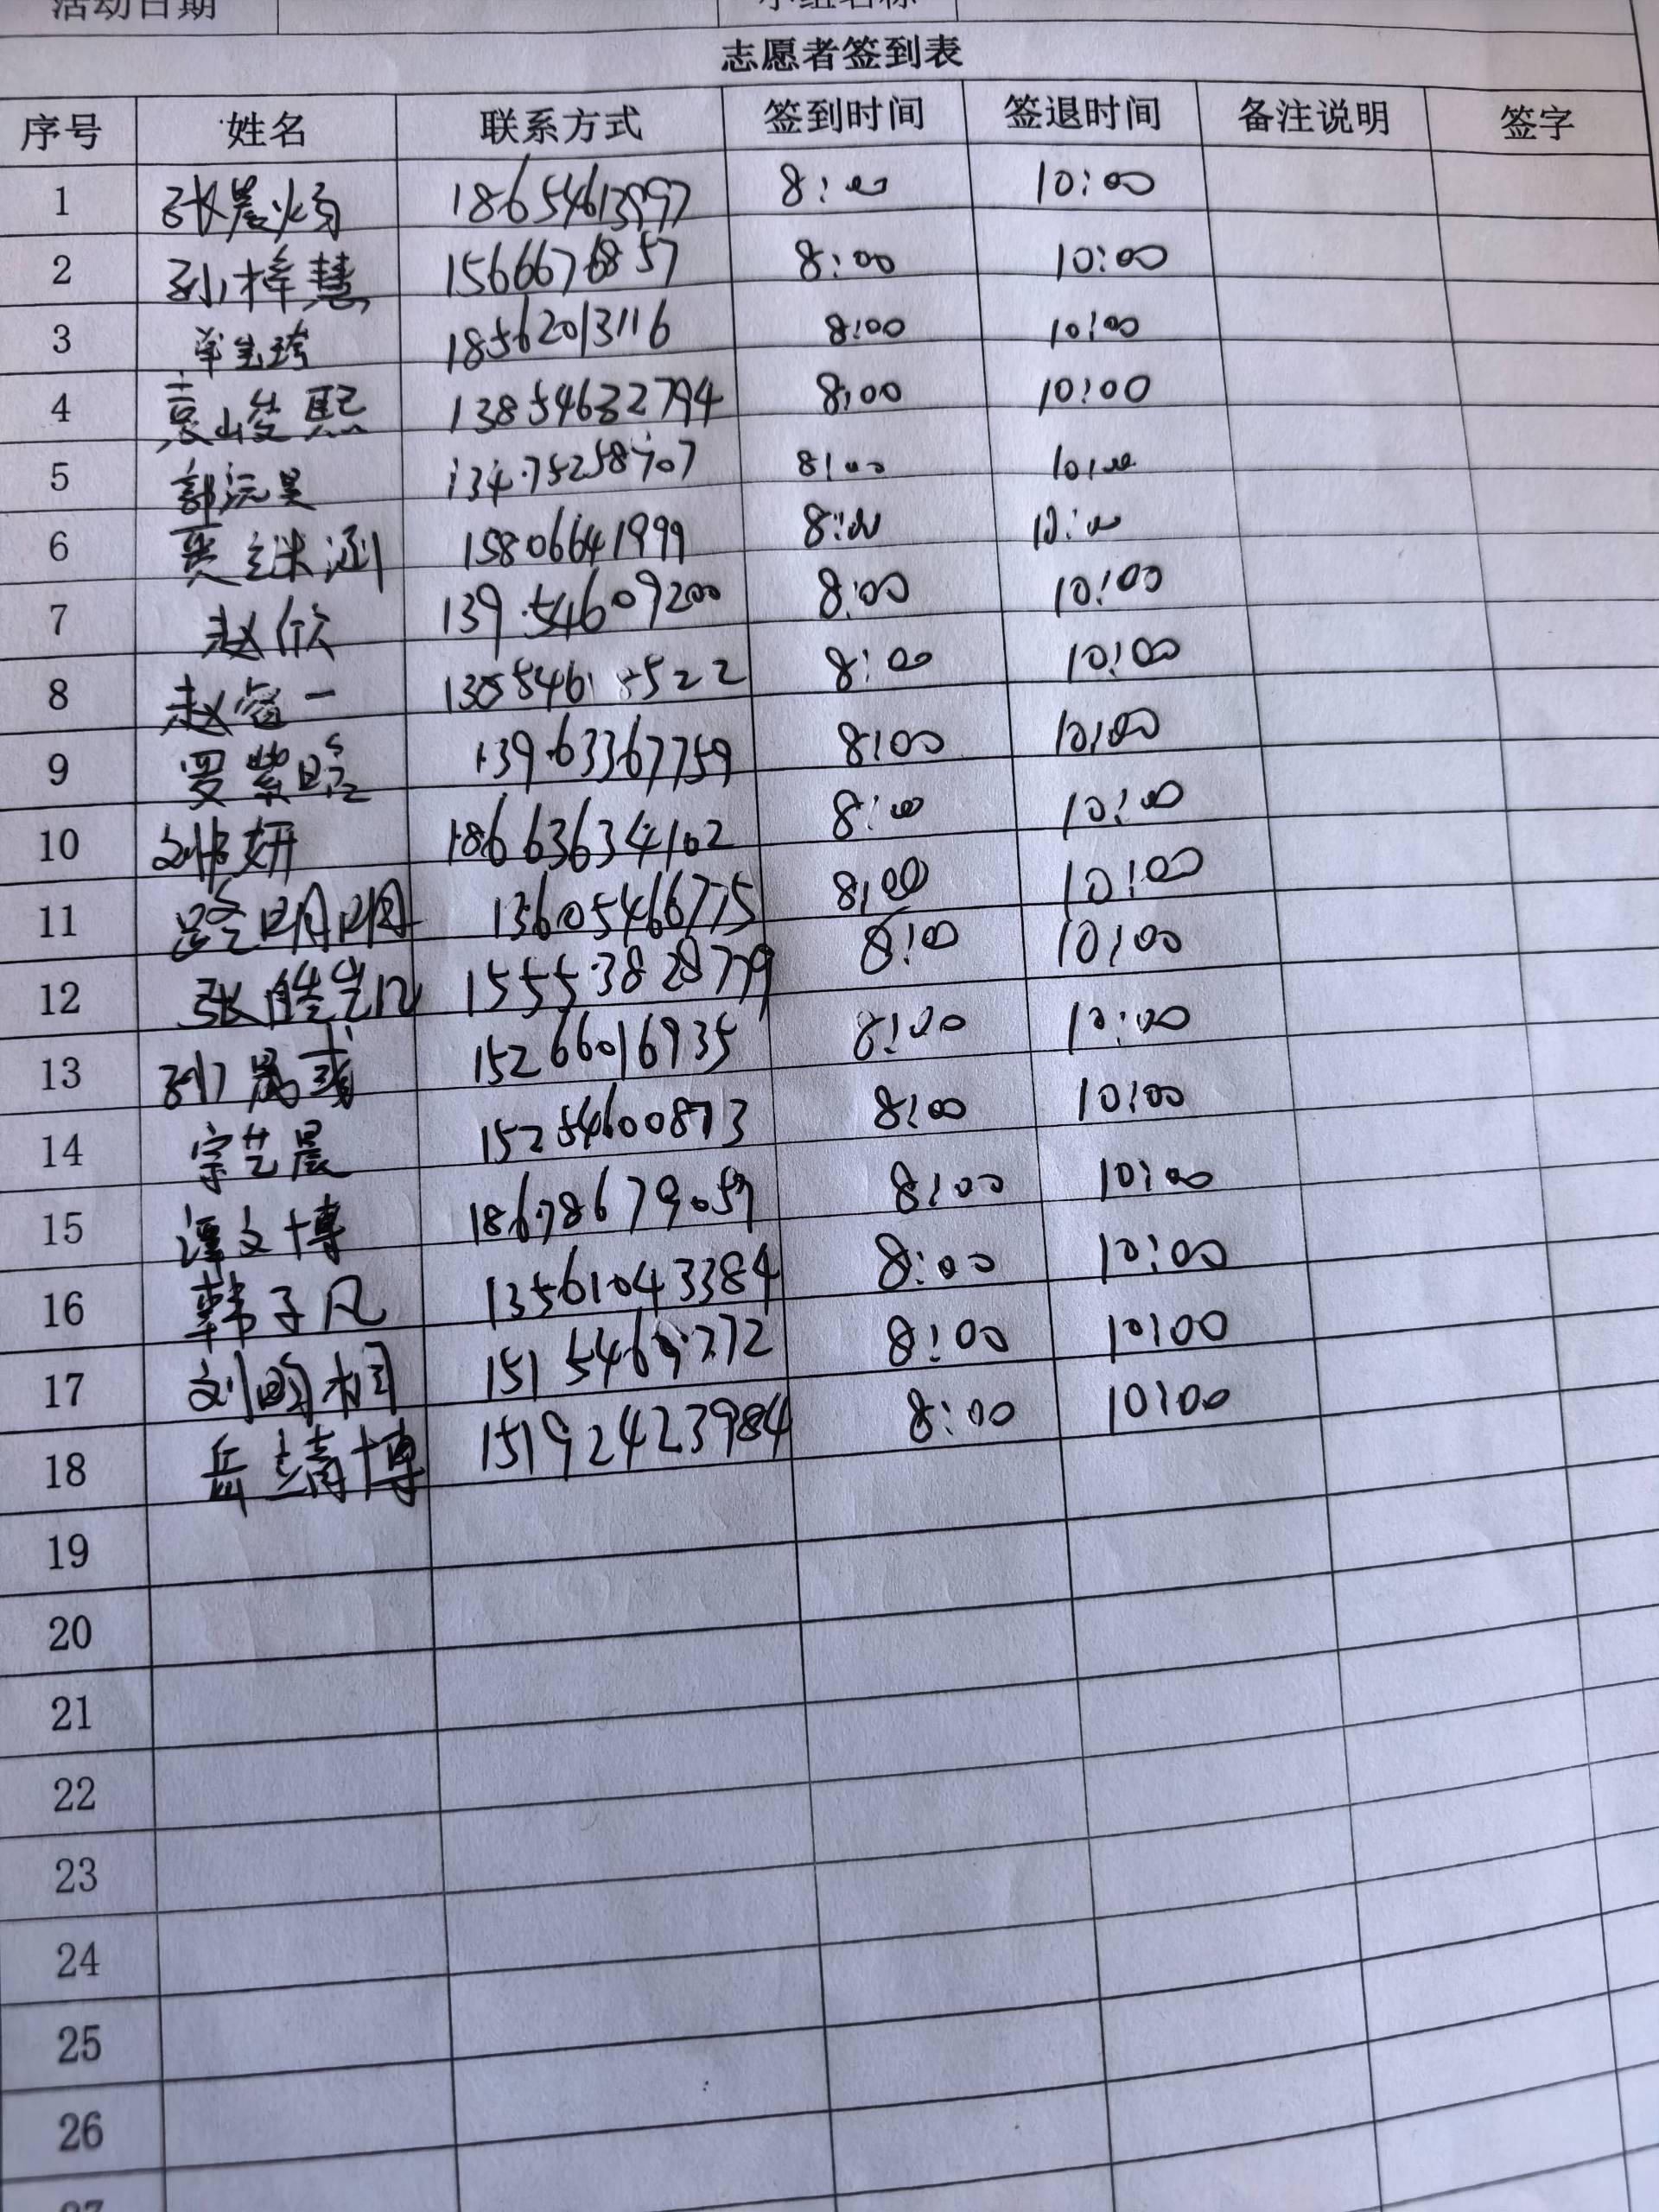 活动日期 小组名称
志愿者签到表
序号 姓名 联系方式 签到时间 签退时间 备注说明 签字
1 张晨炀 18654613997 8:00 10:00
2 孙梓慧 15666768857 8:00 10:00
3 18562013116 8:00 10:00
4 袁峻熙 13854632794 8:00 10:00
5 郭沅昊 13475258707 8:00 10:00
6 15806641999 8:00 10:00
7 赵欣 13954609200 8:00 10:00
8 赵睿一 8:00 10:00
9 罗紫晗 13963367759 8:00 10:00
10 妍 18663634102 8:00 10:00
11 路明明 13605466775 8:00 10:00
12 张皓 15553828779 8:00 10:00
13 孙晟彧 15266016935 8:00 10:00
14 宗艺晨 15254600873 8:00 10:00
15 谭文博 18678679059 8:00 10:00
16 韩子凡 13561043384 8:00 10:00
17 刘明桐 8:00 10:00
18 岳靖博 15192423984 8:00 10:00
19
20
21
22
23
24
25
26
27